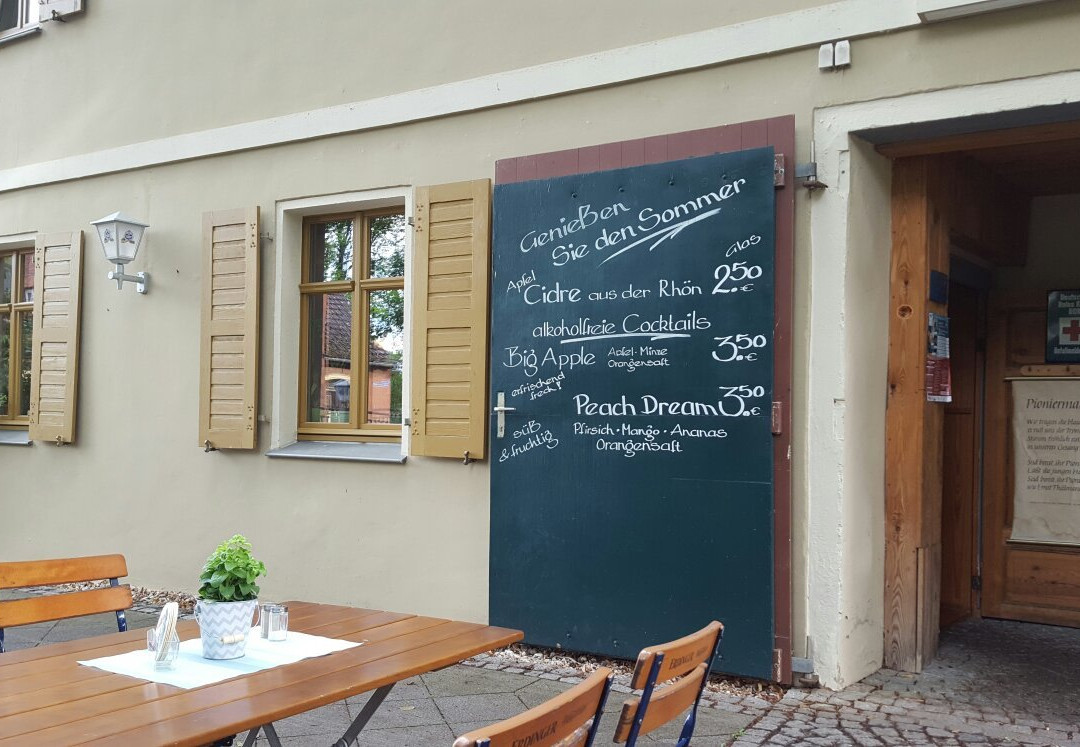 Genießen
Sie den Sommer
Glas
Apfel
Cidre aus der Rhön 2.50 €
alkoholfreie Cocktails
Big Apple Apfel · Minze 3.50 €
Orangensaft
erfrischend
frech!
Peach Dream 3.50 €
süß
& fruchtig
Pfirsich · Mango · Ananas
Orangensaft
Pionierma
ERDINGER
ERDINGER